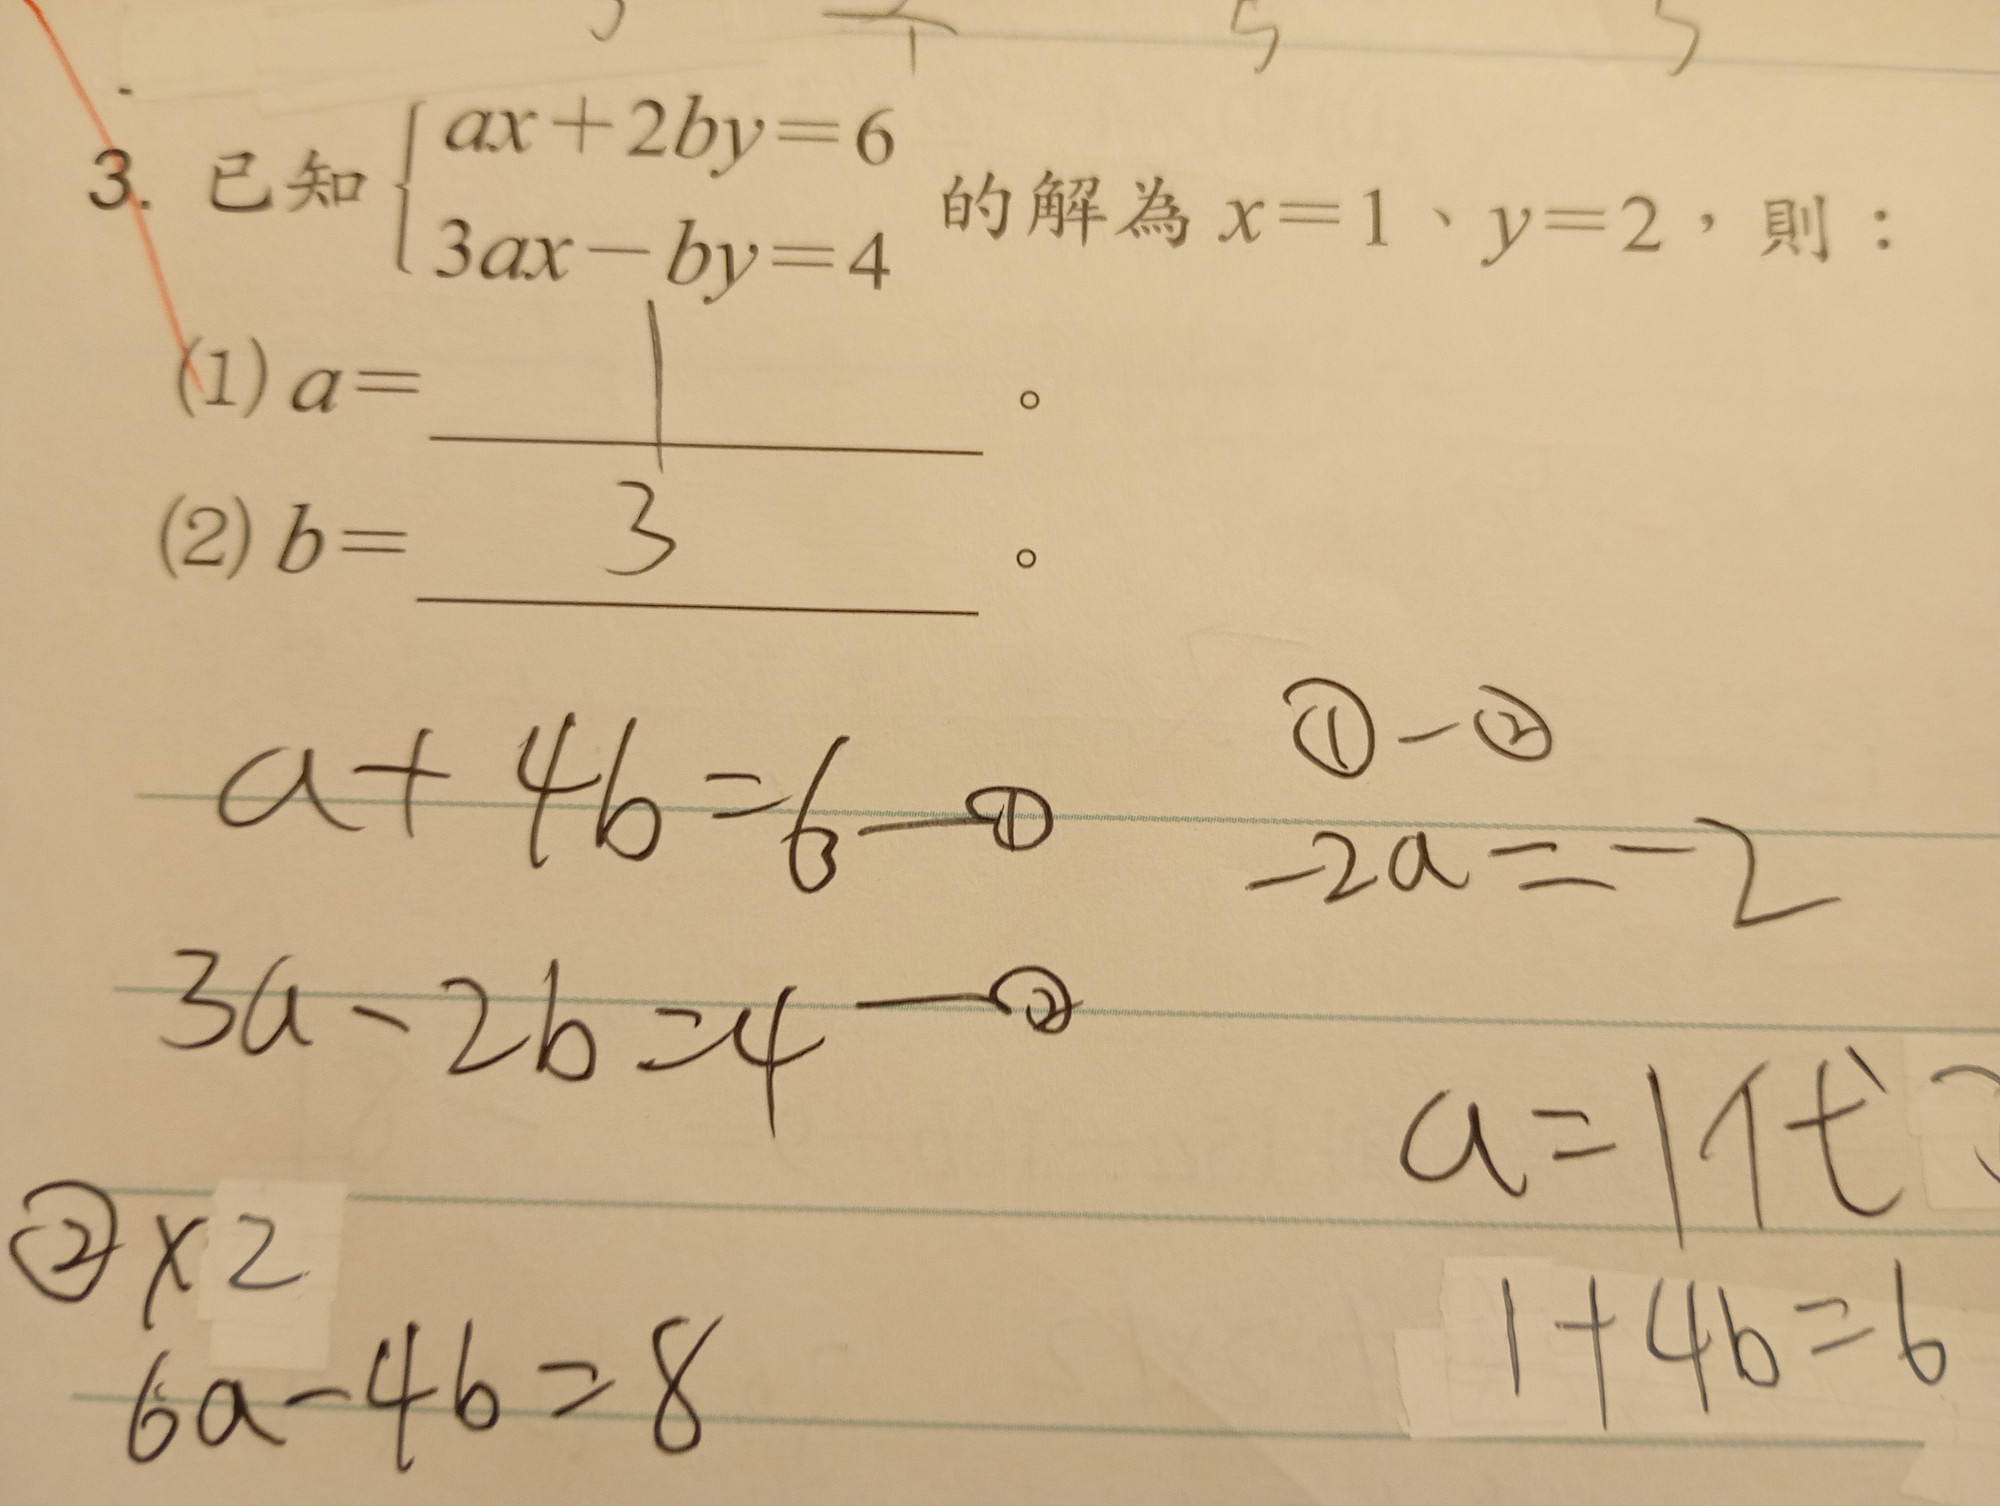 3. 已知 { ax+2by=6
3ax-by=4 的解為 x=1、y=2,則:
(1) a= 1 。
(2) b= 3 。
a+4b=6—①
3a-2b=4—②
②×2
6a-4b=8
①-②
-2a=-2
a=1代
1+4b=6